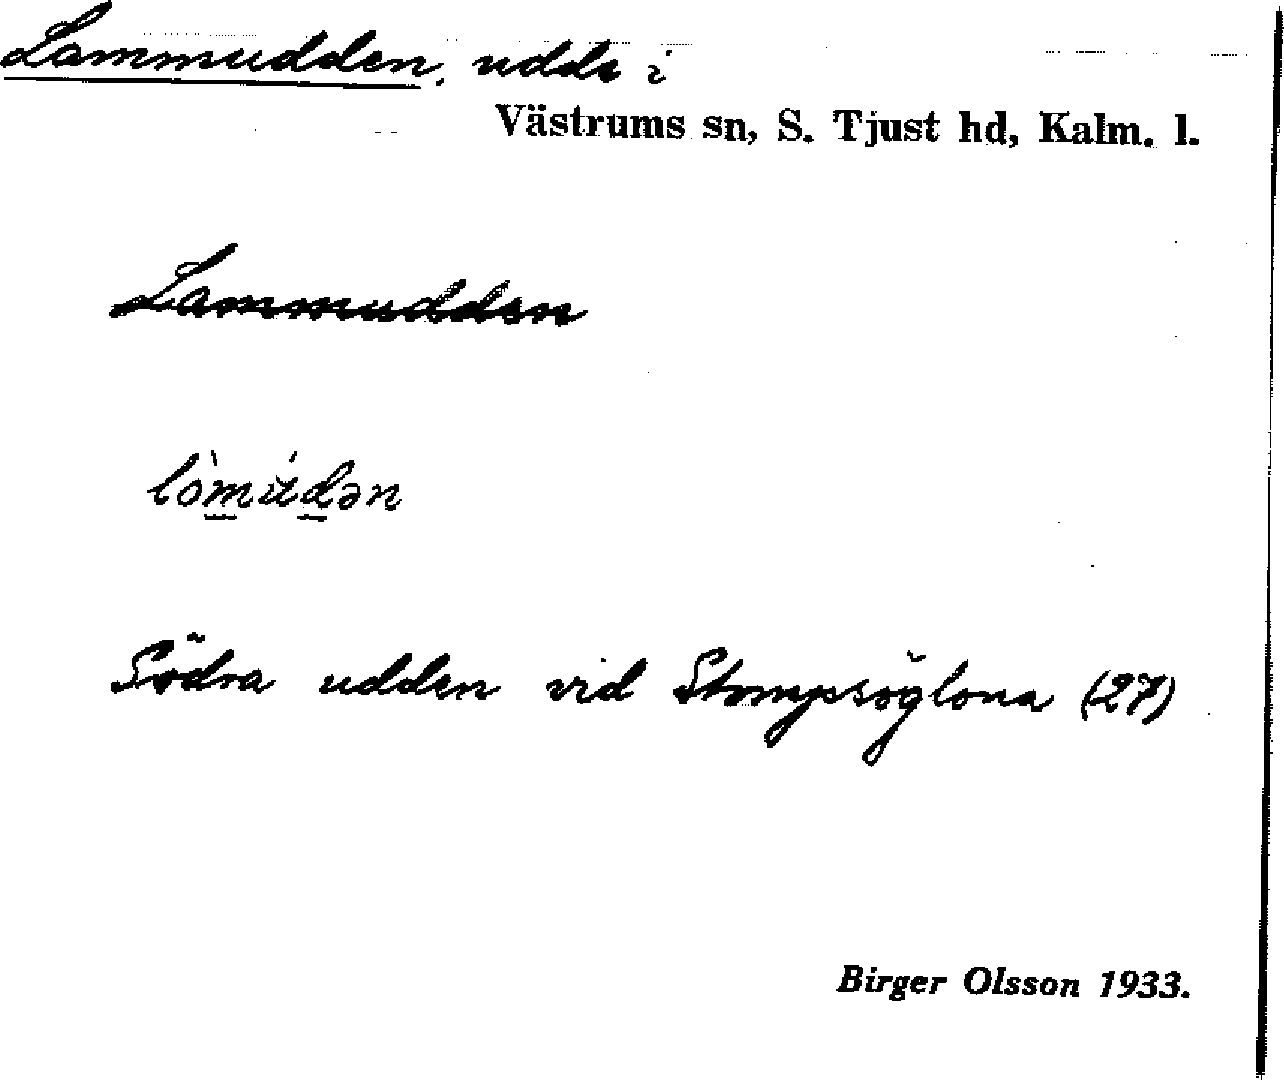 Lammudden, udde i
Västrums sn, S. Tjust hd, Kalm. l.
Lammudden
Södra udden vid Stompsöglona (27)
Birger Olsson 1933.